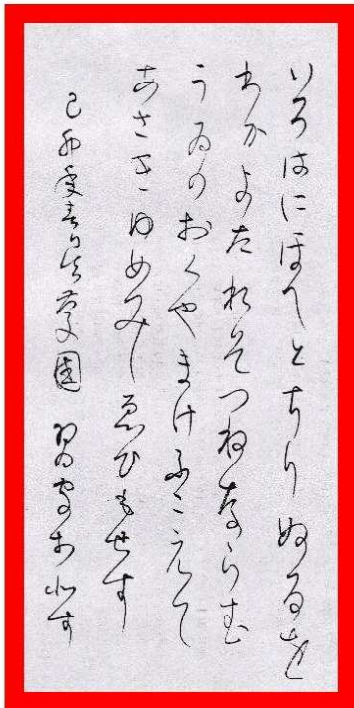 いろはにほへとちりぬるを
わかよたれそつねならむ
うゐのおくやまけふこえて
あさきゆめみしゑひもせす
己卯